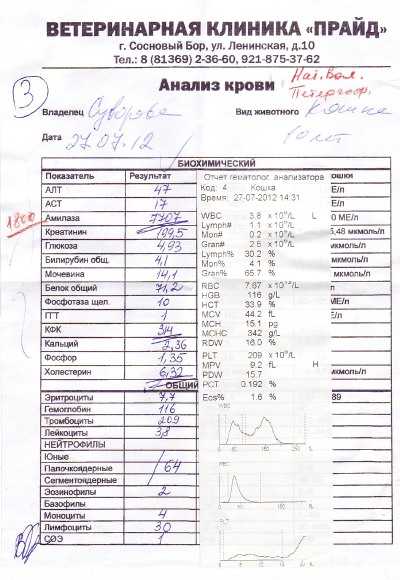 ВЕТЕРИНАРНАЯ КЛИНИКА «ПРАЙД»
г. Сосновый Бор, ул. Ленинская, д.10
Тел.: 8 (81369) 2-36-60, 921-875-37-62
Анализ крови
3
Владелец Суворова Вид животного Кошка
Дата 27.07.12 10 лет
БИОХИМИЧЕСКИЙ
Показатель Результат
АЛТ 47
АСТ 17
1800 Амилаза 7707
Креатинин 199,5
Глюкоза 4,93
Билирубин общ. 4,1
Мочевина 14,1
Белок общий 71,2
Фосфотаза щел. 10
ГГТ 1
КФК 314
Кальций 2,36
Фосфор 1,35
Холестерин 6,32
ОБЩИЙ
Эритроциты 7,7
Гемоглобин 116
Тромбоциты 209
Лейкоциты 3,8
НЕЙТРОФИЛЫ
Юные
Палочкоядерные 64
Сегментоядерные
Эозинофилы 2
Базофилы
Моноциты 4
Лимфоциты 30
СОЭ 1
Отчет гематолог. анализатора
Код: 4 Кошка
Время: 27-07-2012 14:31
WBC 3.8 x 10⁹/L L
Lymph# 1.1 x 10⁹/L
Mon# 0.2 x 10⁹/L
Gran# 2.5 x 10⁹/L
Lymph% 30.2 %
Mon% 4.1 %
Gran% 65.7 %
RBC 7.67 x 10¹²/L
HGB 116 g/L
HCT 33.9 %
MCV 44.2 fL
MCH 15.1 pg
MCHC 342 g/L
RDW 16.0 %
PLT 209 x 10⁹/L
MPV 9.2 fL H
PDW 15.7
PCT 0.192 %
Eos% 1.6 %
WBC
RBC
PLT